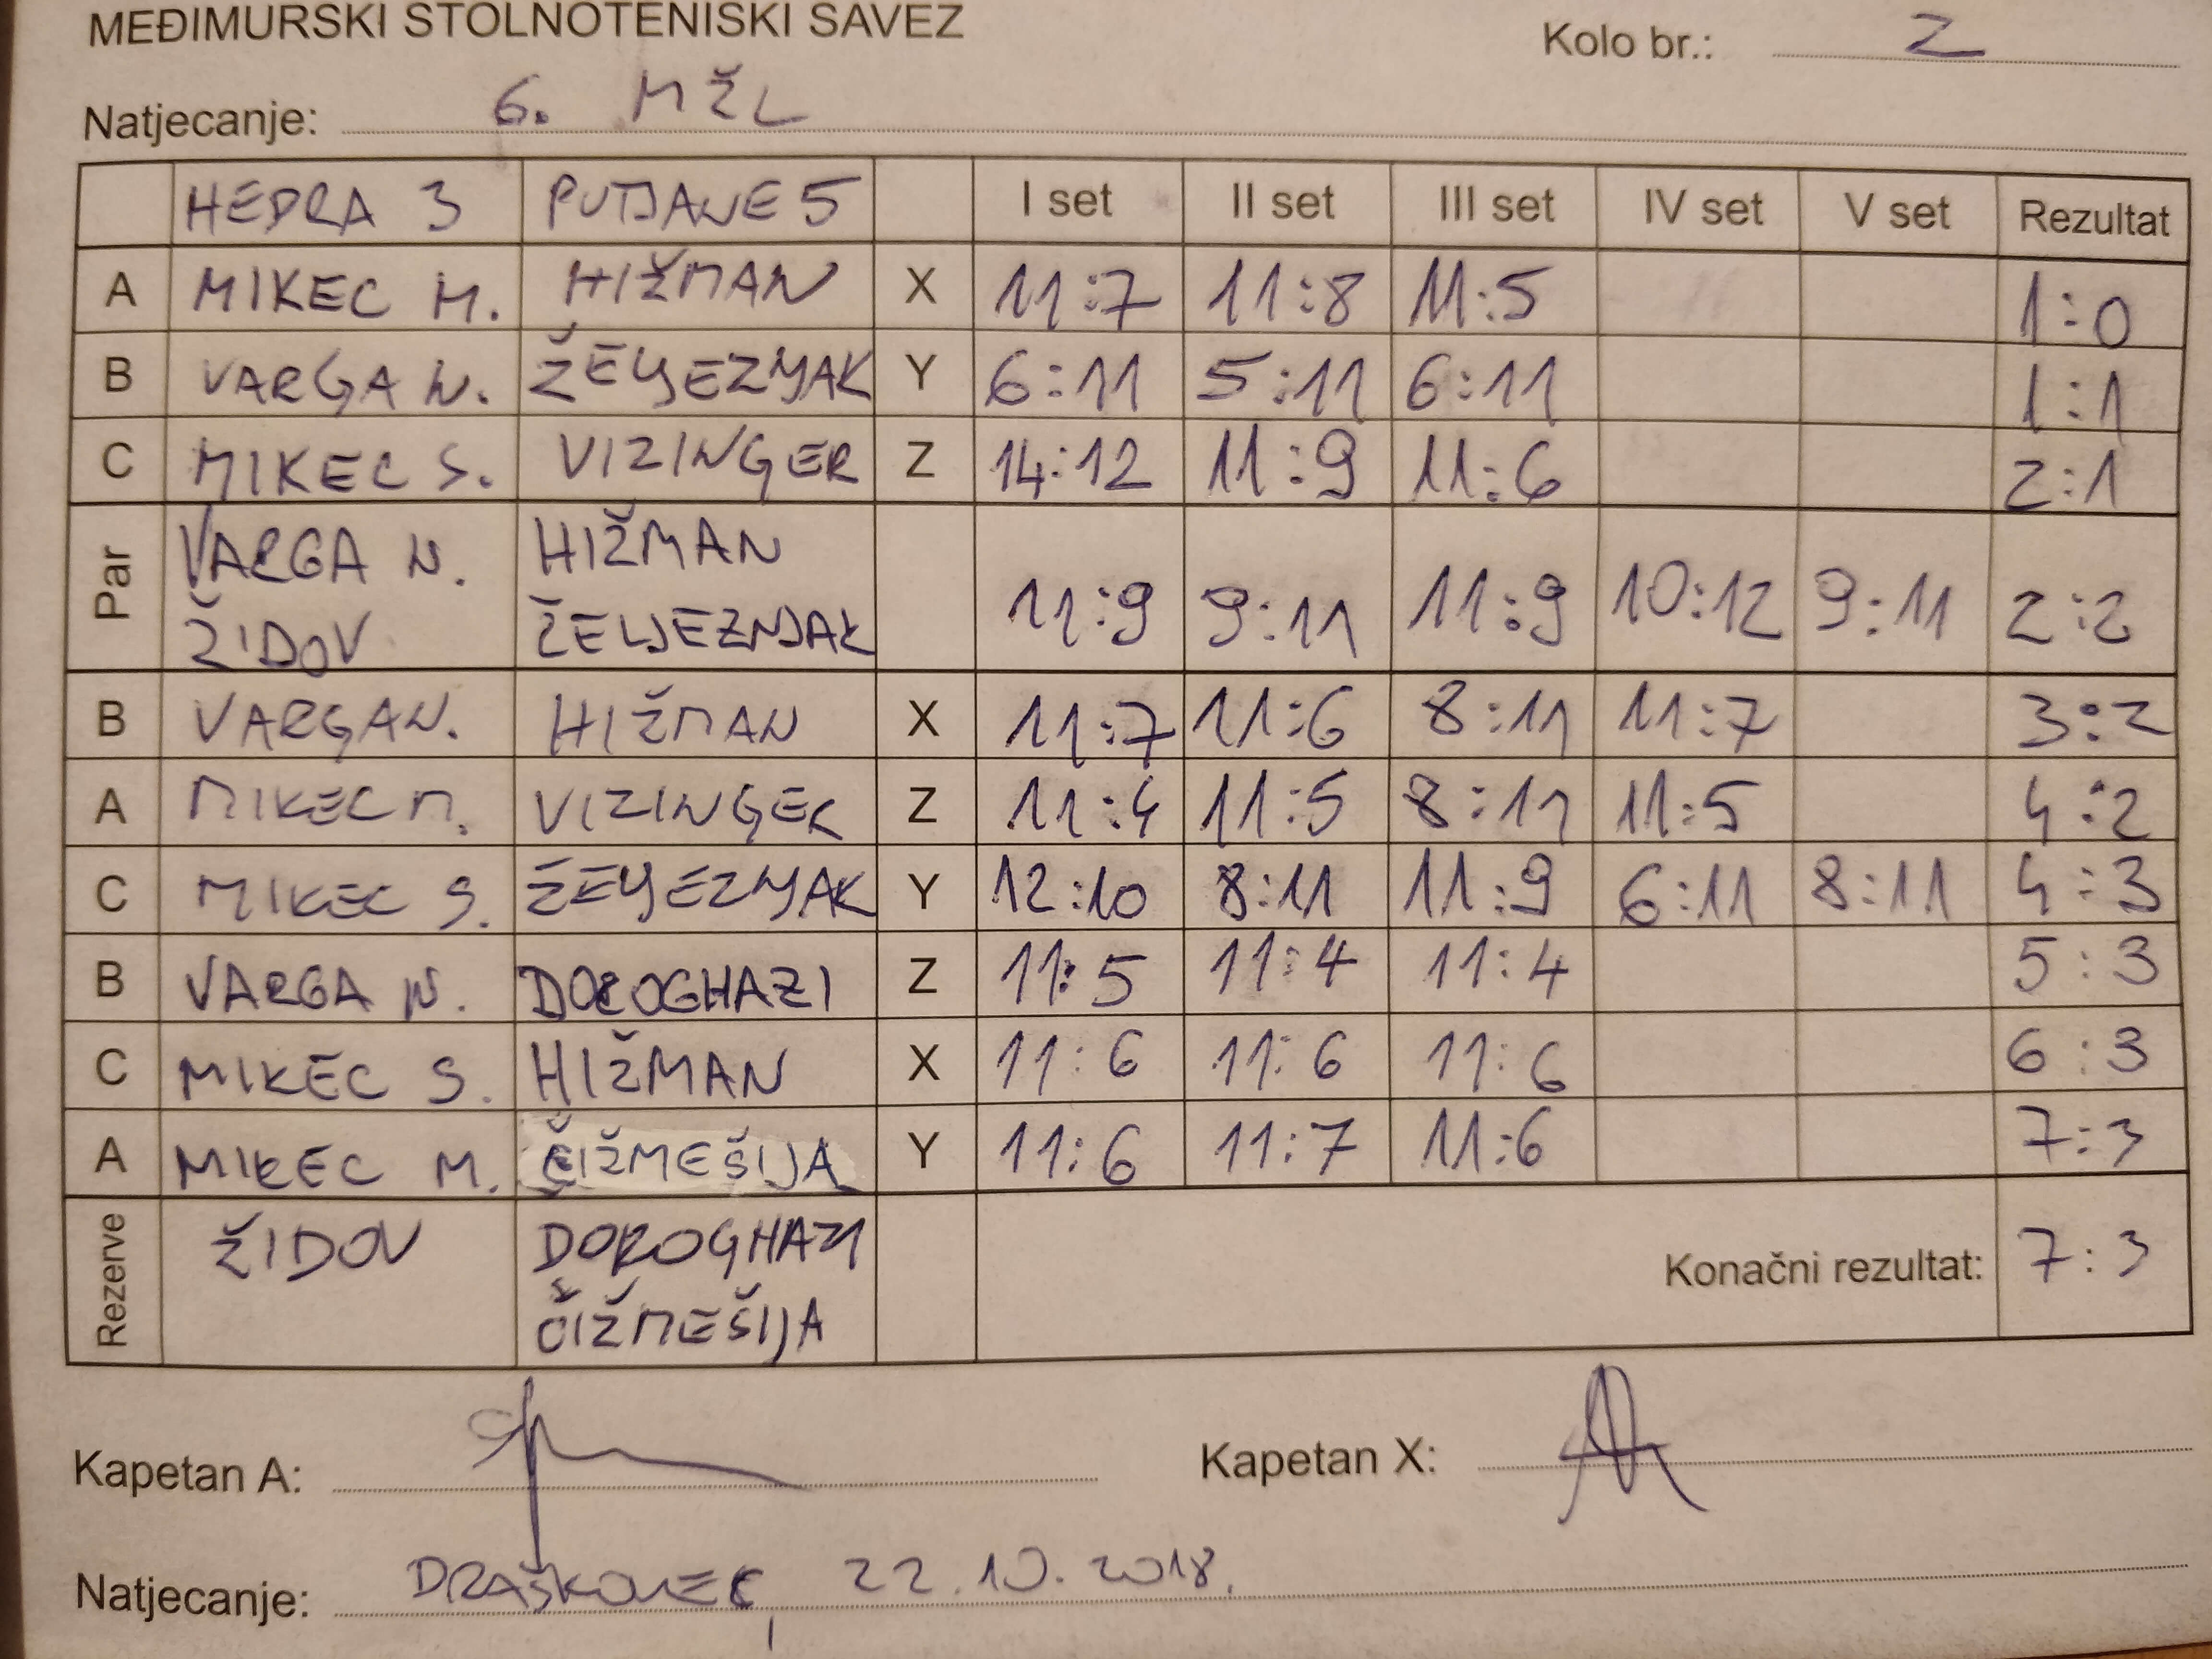 MEĐIMURSKI STOLNOTENISKI SAVEZ
Kolo br.: 2
Natjecanje: 6. MŽL
HEDRA 3 PUTJANE 5 I set II set III set IV set V set Rezultat
A MIKEC M. HIŽMAN X 11:7 11:8 11:5 1:0
B VARGA N. ŽELJEZNJAK Y 6:11 5:11 6:11 1:1
C MIKEC S. VIZINGER Z 14:12 11:9 11:6 2:1
Par VARGA N. HIŽMAN
ŽIDOV ŽELJEZNJAK 11:9 9:11 11:9 10:12 9:11 2:2
B VARGA N. HIŽMAN X 11:7 11:6 8:11 11:7 3:2
A MIKEC M. VIZINGER Z 11:4 11:5 8:11 11:5 4:2
C MIKEC S. ŽELJEZNJAK Y 12:10 8:11 11:9 6:11 8:11 4:3
B VARGA N. DOROGHAZI Z 11:5 11:4 11:4 5:3
C MIKEC S. HIŽMAN X 11:6 11:6 11:6 6:3
A MIKEC M. ČIŽMEŠIJA Y 11:6 11:7 11:6 7:3
Rezerve ŽIDOV DOROGHAZI
ČIŽMEŠIJA
Konačni rezultat: 7:3
Kapetan A: Kapetan X:
Natjecanje: DRAŠKOVEC, 22.10.2018.